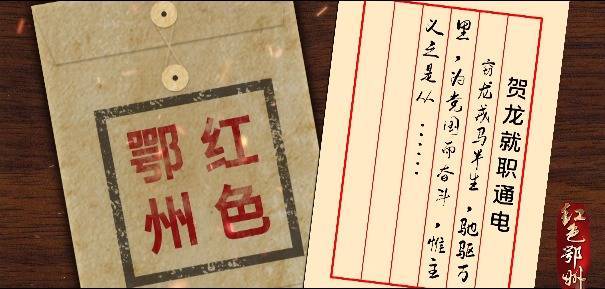 红色
鄂州
贺龙就职通电
窃龙戎马半生，驰驱万
里，为党国而奋斗，惟主
义之是从……
红色鄂州